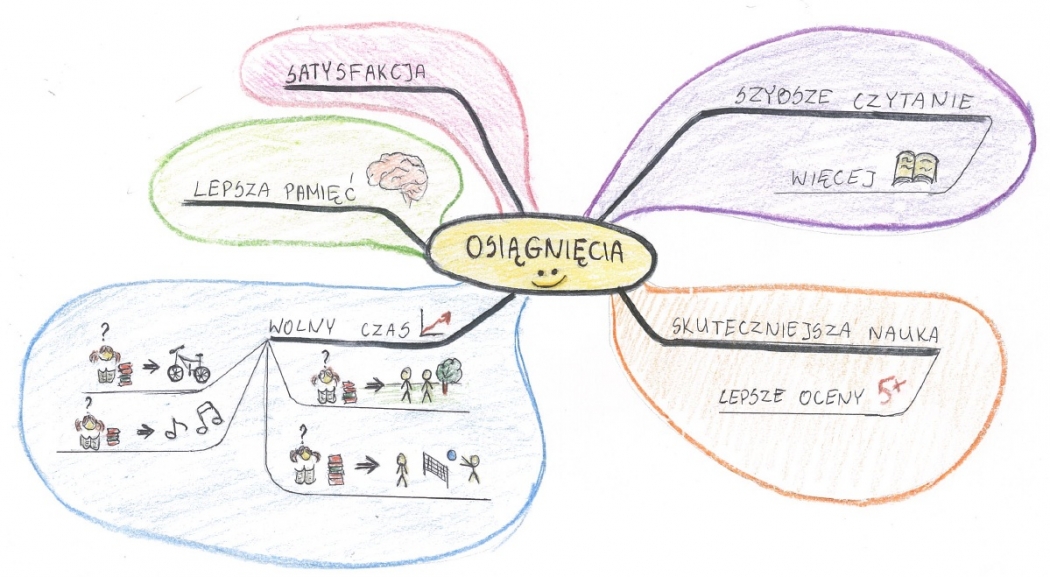 SATYSFAKCJA
SZYBSZE CZYTANIE
WIĘCEJ
LEPSZA PAMIĘĆ
OSIĄGNIĘCIA
WOLNY CZAS
?
?
?
?
SKUTECZNIEJSZA NAUKA
LEPSZE OCENY 5+